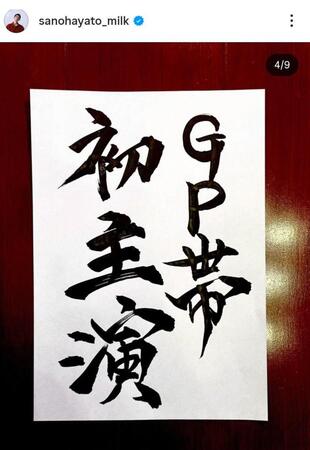 sanohayato_milk
4/9
GP帯
初主演